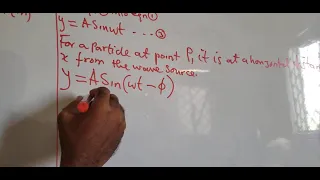 y = A Sin wt ... ③
For a particle at point P, it is at a horizontal
x from the wave source.
y = A Sin (wt - ϕ)